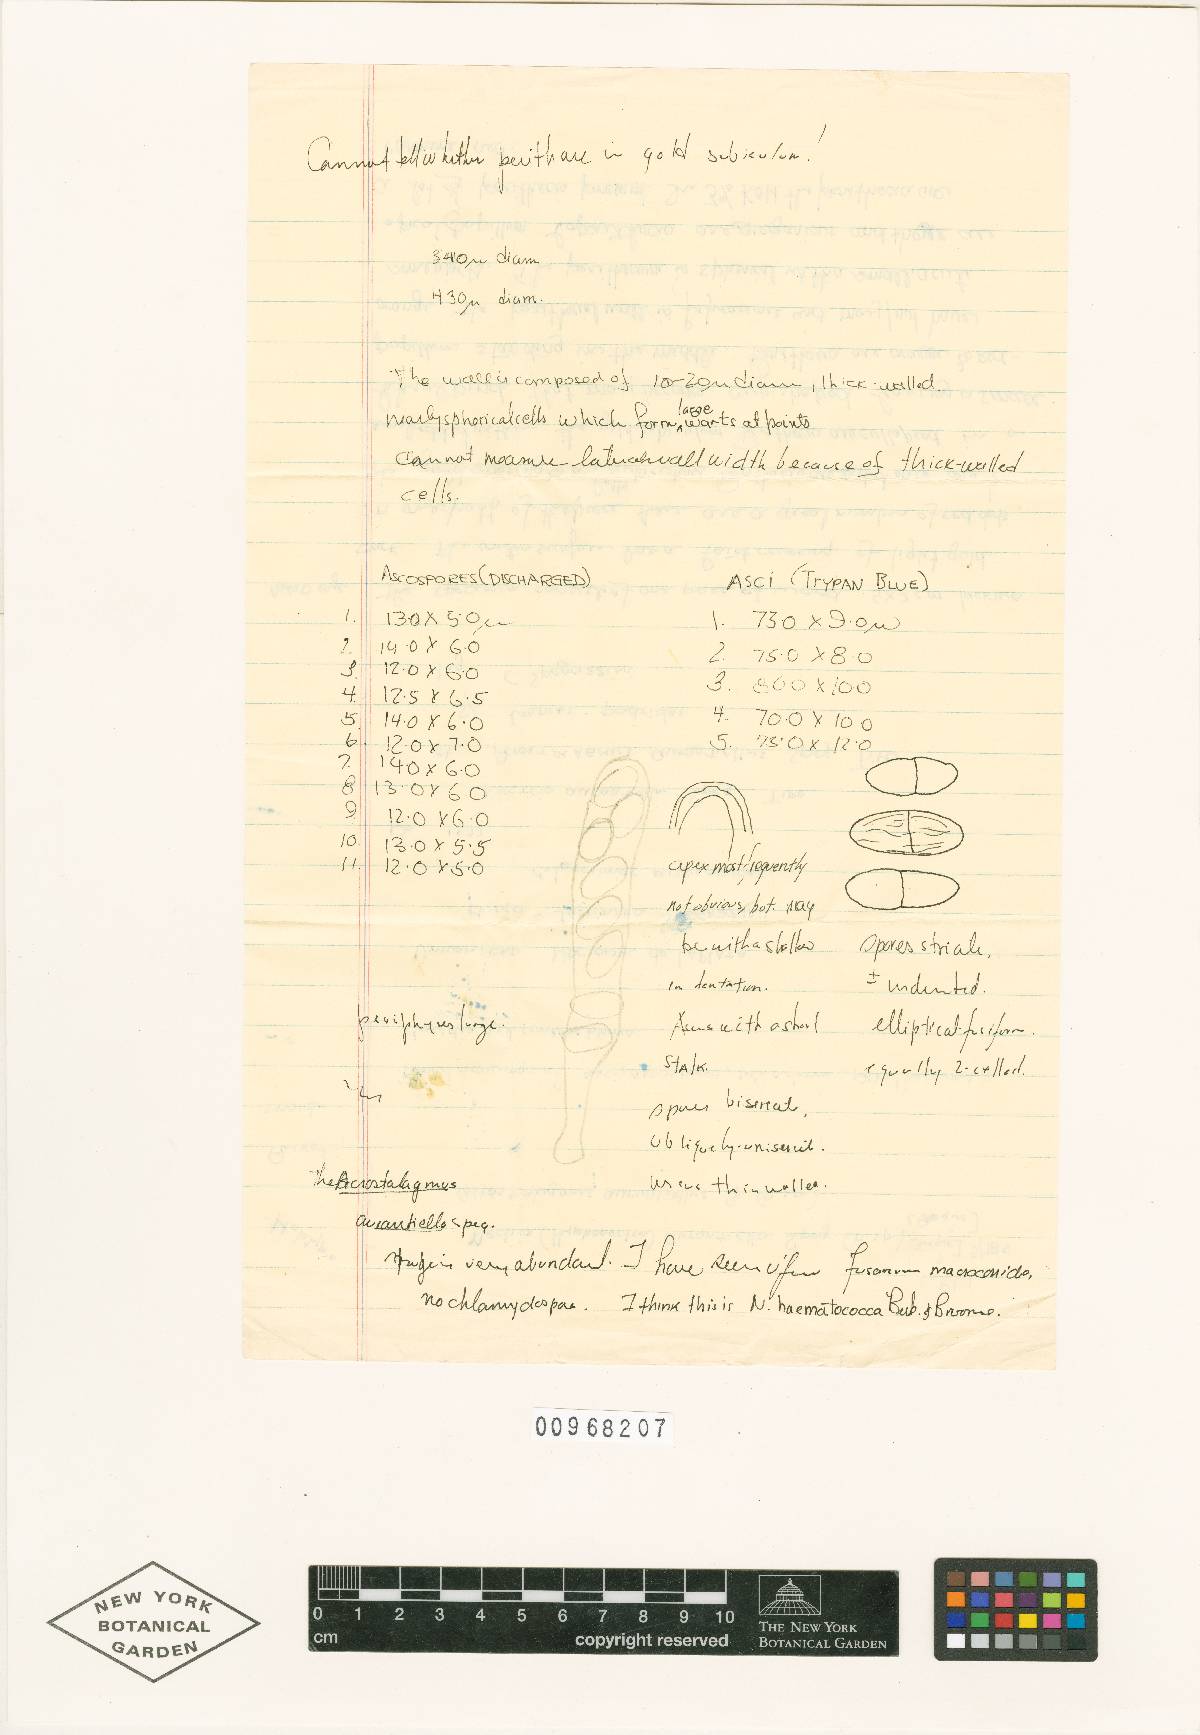 Cannot tell whether perith are in gold subiculum!
340µ diam
430µ diam.
The wall is composed of 10-20µ diam, thick-walled
nearly spherical cells which form large warts at points
cannot measure lateral wall width because of thick-walled
cells.
ASCOSPORES (DISCHARGED)
1. 13.0 X 5.0µ
2. 14.0 X 6.0
3. 12.0 X 6.0
4. 12.5 X 6.5
5. 14.0 X 6.0
6. 12.0 X 7.0
7. 14.0 X 6.0
8. 13.0 X 6.0
9. 12.0 X 6.0
10. 13.0 X 5.5
11. 12.0 X 5.0
ASCI (TRYPAN BLUE)
1. 73.0 X 9.0µ
2. 75.0 X 8.0
3. 80.0 X 10.0
4. 70.0 X 10.0
5. 75.0 X 12.0
apex most frequently
not obvious, but may
be with a shallow
indentation.
Ascus with a short
stalk.
spores biseriate,
obliquely-uniseriate.
ascus thin walled.
spores striate,
± indented.
elliptical-fusiform.
equally 2-celled.
periphyses large.
The Acrostalagmus
aurantiellos peg.
is very abundant. I have seen a few fusarium macroconidia,
no chlamydospore. I think this is N. haematococca Berk. & Broome.
00968207
NEW YORK
BOTANICAL
GARDEN
0 1 2 3 4 5 6 7 8 9 10
cm
copyright reserved
THE NEW YORK
BOTANICAL GARDEN